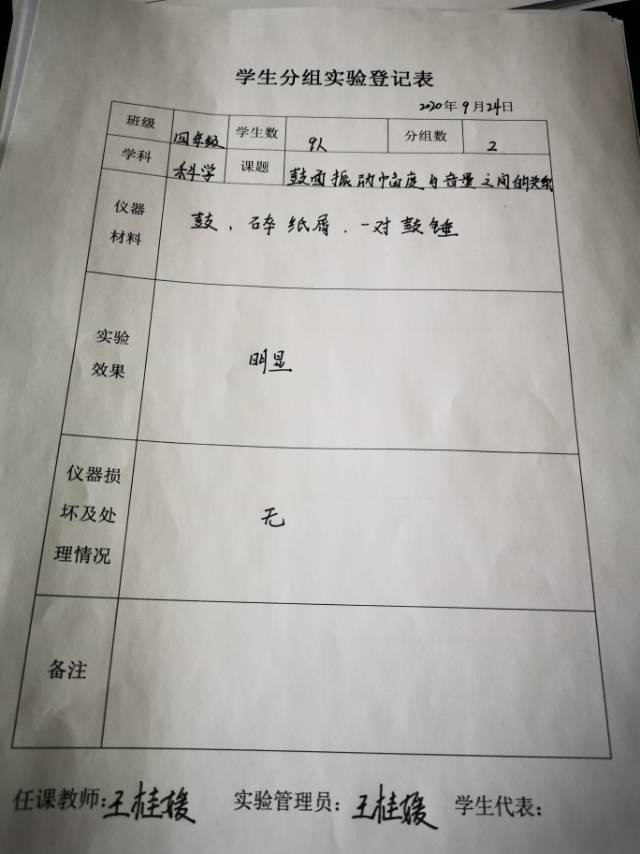 学生分组实验登记表
2020年9月24日
班级 四年级 学生数 9人 分组数 2
学科 科学 课题 鼓面振动幅度与音量之间的关系
仪器材料 鼓、碎纸屑、一对鼓锤
实验效果 明显
仪器损坏及处理情况 无
备注
任课教师:王桂媛 实验管理员:王桂媛 学生代表: